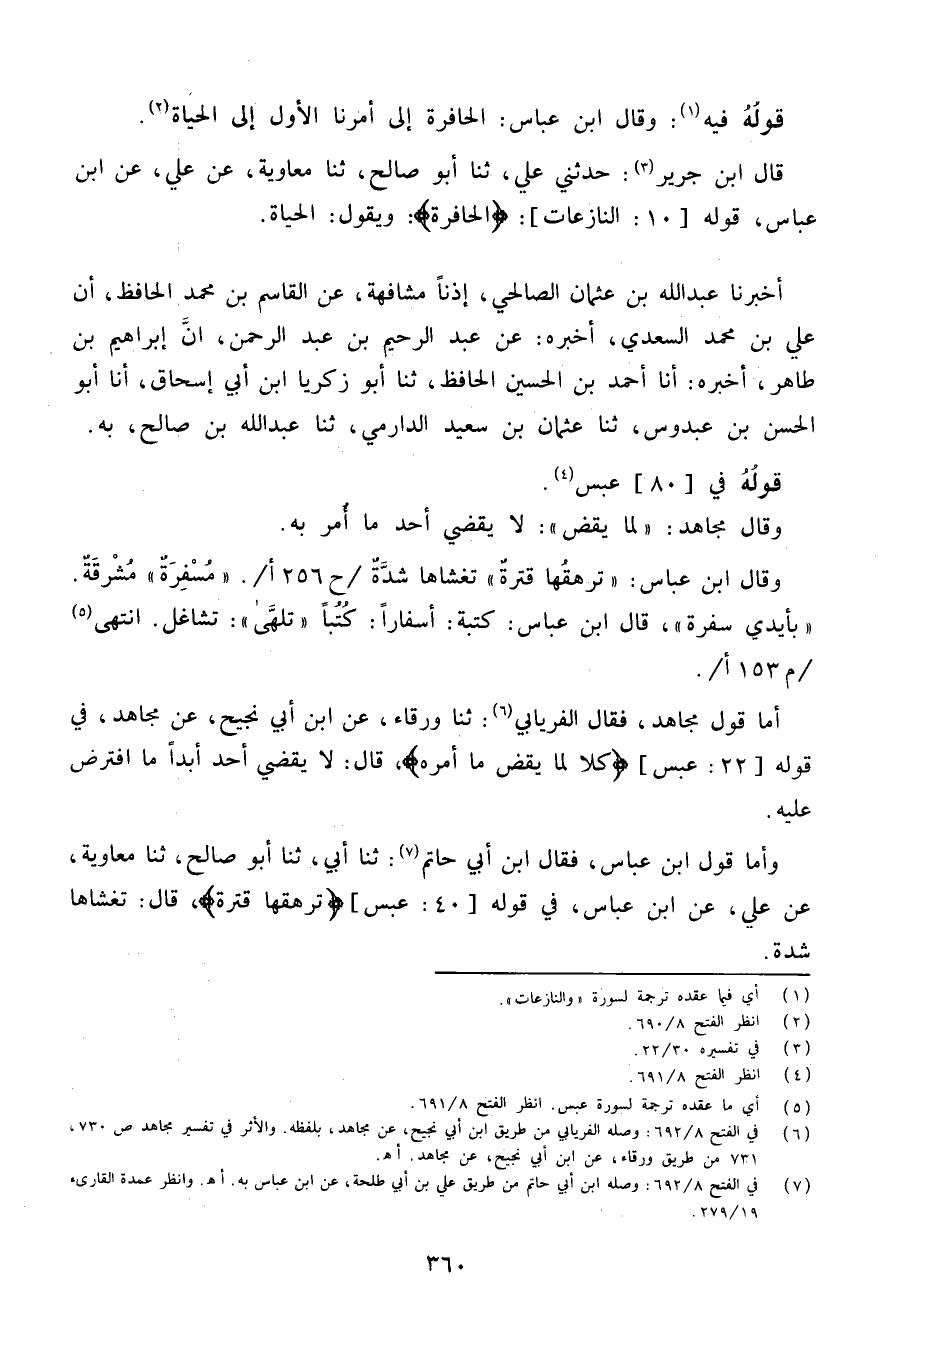 قولُهُ فيه(١): وقال ابن عباس: الحافرة إلى أمرنا الأول إلى الحياة(٢).
قال ابن جرير(٣): حدثني علي، ثنا أبو صالح، ثنا معاوية، عن علي، عن ابن
عباس، قوله [ ١٠ : النازعات ]: ﴿الحافرة﴾: ويقول: الحياة.
أخبرنا عبدالله بن عثمان الصالحي، إذناً مشافهة، عن القاسم بن محمد الحافظ، أن
علي بن محمد السعدي، أخبره: عن عبد الرحيم بن عبد الرحمن، انَّ إبراهيم بن
طاهر، أخبره: أنا أحمد بن الحسين الحافظ، ثنا أبو زكريا ابن أبي إسحاق، أنا أبو
الحسن بن عبدوس، ثنا عثمان بن سعيد الدارمي، ثنا عبدالله بن صالح، به.
قولُهُ في [ ٨٠ ] عبس(٤).
وقال مجاهد: « لما يقض »: لا يقضي أحد ما أُمر به.
وقال ابن عباس: « ترهقُها قترةٌ » تغشاها شدَّةٌ /ح ٢٥٦ أ/. « مُسْفِرَةٌ » مُشْرِقَةٌ.
« بأيدي سفرة »، قال ابن عباس: كتبة: أسفاراً: كُتُباً « تلهَّىٰ »: تشاغل. انتهى(٥)
/م ١٥٣ أ/.
أما قول مجاهد، فقال الفريابي(٦): ثنا ورقاء، عن ابن أبي نجيح، عن مجاهد، في
قوله [ ٢٢ : عبس ] ﴿كلا لما يقض ما أمره﴾، قال: لا يقضي أحد أبداً ما افترض
عليه.
وأما قول ابن عباس، فقال ابن أبي حاتم(٧): ثنا أبي، ثنا أبو صالح، ثنا معاوية،
عن علي، عن ابن عباس، في قوله [ ٤٠ : عبس ] ﴿ترهقها قترة﴾، قال: تغشاها
شدة.
(١) أي فيما عقده ترجمة لسورة « والنازعات ».
(٢) انظر الفتح ٦٩٠/٨.
(٣) في تفسيره ٢٢/٣٠.
(٤) انظر الفتح ٦٩١/٨.
(٥) أي ما عقده ترجمة لسورة عبس. انظر الفتح ٦٩١/٨.
(٦) في الفتح ٦٩٢/٨: وصله الفريابي من طريق ابن أبي نجيح، عن مجاهد، بلفظه. والأثر في تفسير مجاهد ص ٧٣٠،
٧٣١ من طريق ورقاء، عن ابن أبي نجيح، عن مجاهد. أ هـ.
(٧) في الفتح ٦٩٢/٨: وصله ابن أبي حاتم من طريق علي بن أبي طلحة، عن ابن عباس به. أ هـ. وانظر عمدة القارىء
٢٧٩/١٩.
٣٦٠